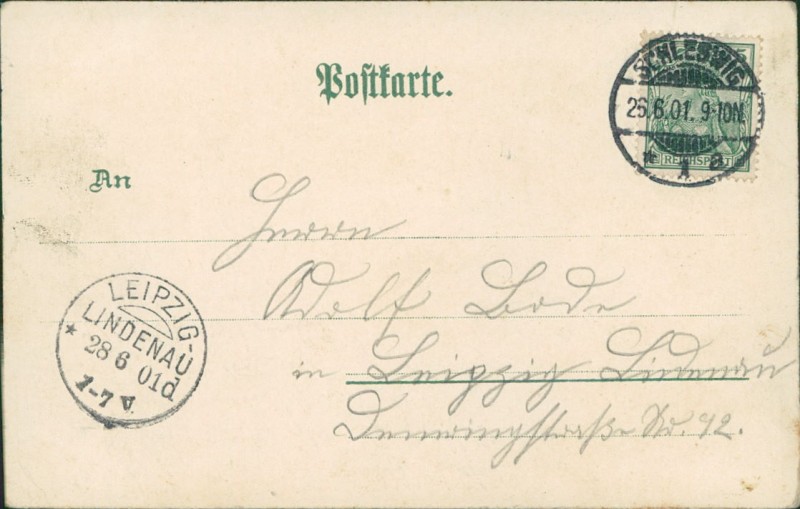 Postkarte.
SCHLESWIG
26.6.01. 9-10N.
* 1 a
REICHSPOST
An
Herrn
Adolf Bode
in Leipzig Lindenau
No. 12.
LEIPZIG-
LINDENAU
* 28 6 01 d
1-7 V.